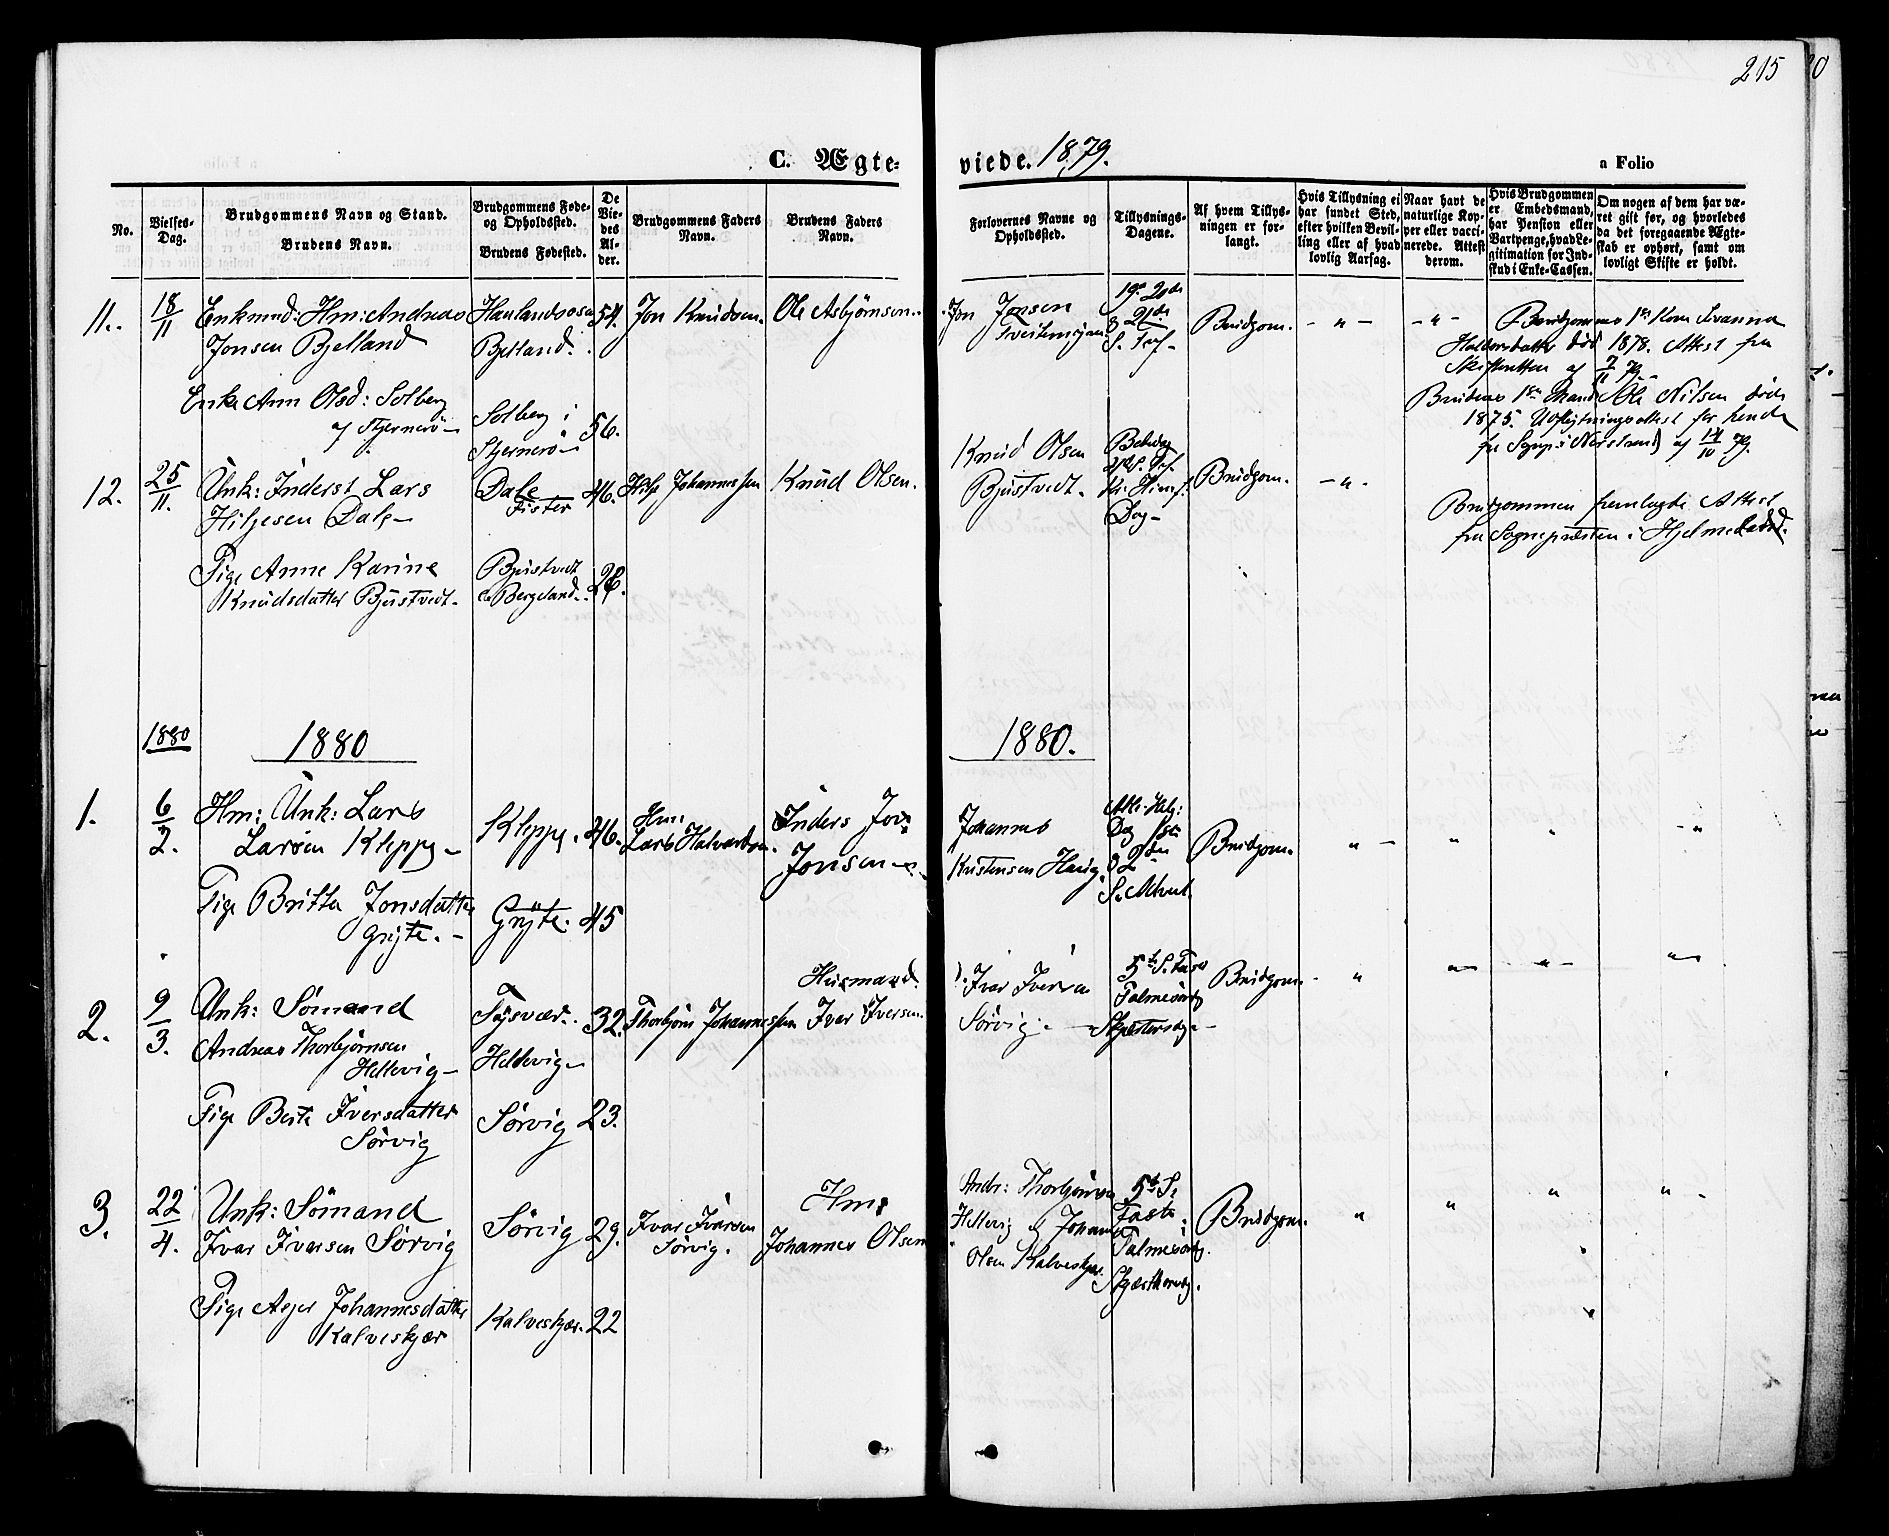 215
C. Ægteviede. 1879.
a Folio
No.
Vielses-Dag.
Brudgommens Navn og Stand.
Brudens Navn.
Brudgommens Føde- og Opholdssted.
Brudens Fødested.
De Viedes Alder.
Brudgommens Faders Navn.
Brudens Faders Navn.
Forlovernes Navne og Opholdssted.
Tillysnings-Dagene.
Af hvem Tillysningen er forlangt.
Hvis Tillysning ei har fundet Sted, efter hvilken Bevilling eller af hvad lovlig Aarsag.
Naar havt de naturlige Kopper eller vaccinerede. Attest derom.
Hvis Brudgommen er Embedsmand, har Pension eller Vartpenge, hvad Legitimation for Indskud i Enke-Cassen.
Om nogen af dem har været gift før, og hvorledes da det foregaaende Ægteskab er ophørt, samt om lovligt Skifte er holdt.
11. 18/11 Enkemd: Hm: Andreas
Jonsen Bjelland
Bjelland. 54. Jon Knudsen. Ole Asbjørnsen.
Jon Jonsen
Brudgom. - " - - " -
Brudgommens 1ste Kone
Haldorsdatter død 1878. Attest fra
Skifteretten af 7/11 79.
Enke Ann Olsd: Solberg
af Stjernerö
Solberg i
Stjernerö 56.
Brudens 1ste Mand Ole Nilsen døde
1875. Udflytningsattest for hende
fra Sognepr. i Nerstrand af 14/10 79.
12. 25/11. Unk: Inderst Lars
Hiljesen Dale
Dale
Fister 46. Hilje Johannessen Knud Olsen.
Knud Olsen
Bjustvedt.
Bededag
Kr. Himf.
Dag
Brudgom. - " -
Brudgommen fremlagde Attest
fra Sognepræsten i Hjelmeland.
Pige Anne Karine
Knudsdatter Bjustvedt.
Bjustvedt
Bergeland. 28.
1880
1880
1880.
1. 6/2. Hm: Unk: Lars
Larsen Kleppe
Kleppe. 46. Hm:
Lars Halvardsen.
Inders
Jonsen
Johannes
Kristensen Haug.
Dag 1ste
& 2den
S. Advent.
Brudgom. " " " "
Pige Britta Jonsdatter
Gryte.
Gryte. 45
2. 9/3. Unk: Sømand
Andreas Thorbjørnsen
Hellevig
Tysvær.
Hellevig 32. Thorbjørn Johannessen
Husmand.
Ivar Iversen.
Ivar Iversen
Sørvig.
5te S. Faste
Palmesøndag
Skjærtorsdag
Brudgom. " " " "
Pige Berte Iversdatter
Sørvig
Sørvig 23.
3. 22/4. Unk: Sømand
Ivar Ivarsen Sørvig
Sørvig 29. Ivar Ivarsen
Sørvig.
Hm:
Johannes Olsen
Andr: Thorbjørnsen
Hellevig og Johannes
Olsen Kalveskjær.
5te S.
Faste
Palmesøndag.
Skjærthorsdag.
Brudgom. " " " "
Pige Johannesdatter
Kalveskjær
Kalveskjær. 22